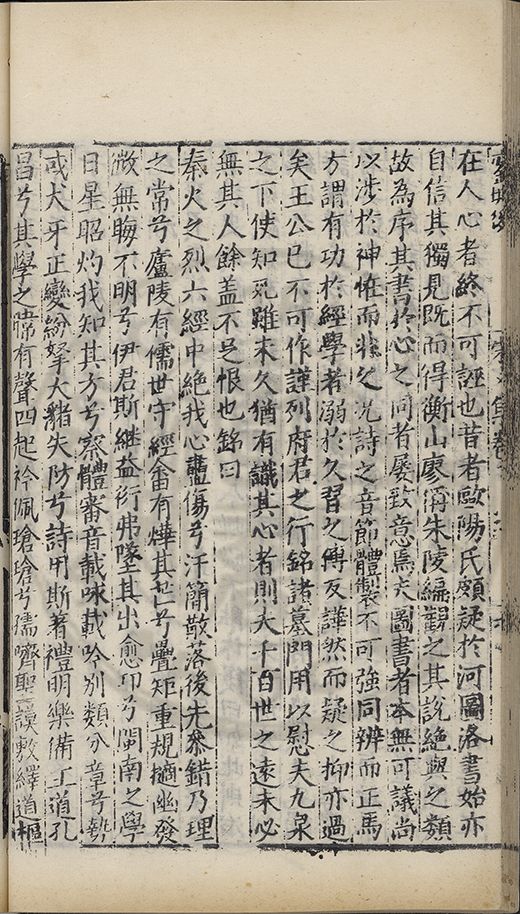 在人心者終不可誣也昔者歐陽氏頗疑於河圖洛書始亦
自信其獨見既而得衡山廖偁朱陵編觀之其說絶與之類
故為序其書於心之同者屢致意焉夫圖書者本無可議尚
以涉於神恠而非之况詩之音節體製不可強同辨而正焉
方謂有功於經學者溺於久習之傳反譁然而疑之抑亦過
矣王公已不可作謹列府君之行銘諸墓門用以慰夫九泉
之下使知死雖未久猶有識其心者則夫千百世之遠未必
無其人餘盖不足恨也銘曰
秦火之烈六經中絶我心盡傷兮汗簡散落後先叅錯乃理
之常兮廬陵有儒世守經畬有燁其芒兮疊矩重規擿幽發
微無晦不明兮伊君斯繼益衍弗墜其出愈卬兮閩南之學
日星昭灼我知其方兮察體審音載咏載吟別類分章兮勢
或犬牙正變紛拏大豬失防兮詩用斯著禮明樂備工道孔
昌兮其學之嫥有聲四起衿佩瑲瑲兮孺嚌聖謨敷繹道樞